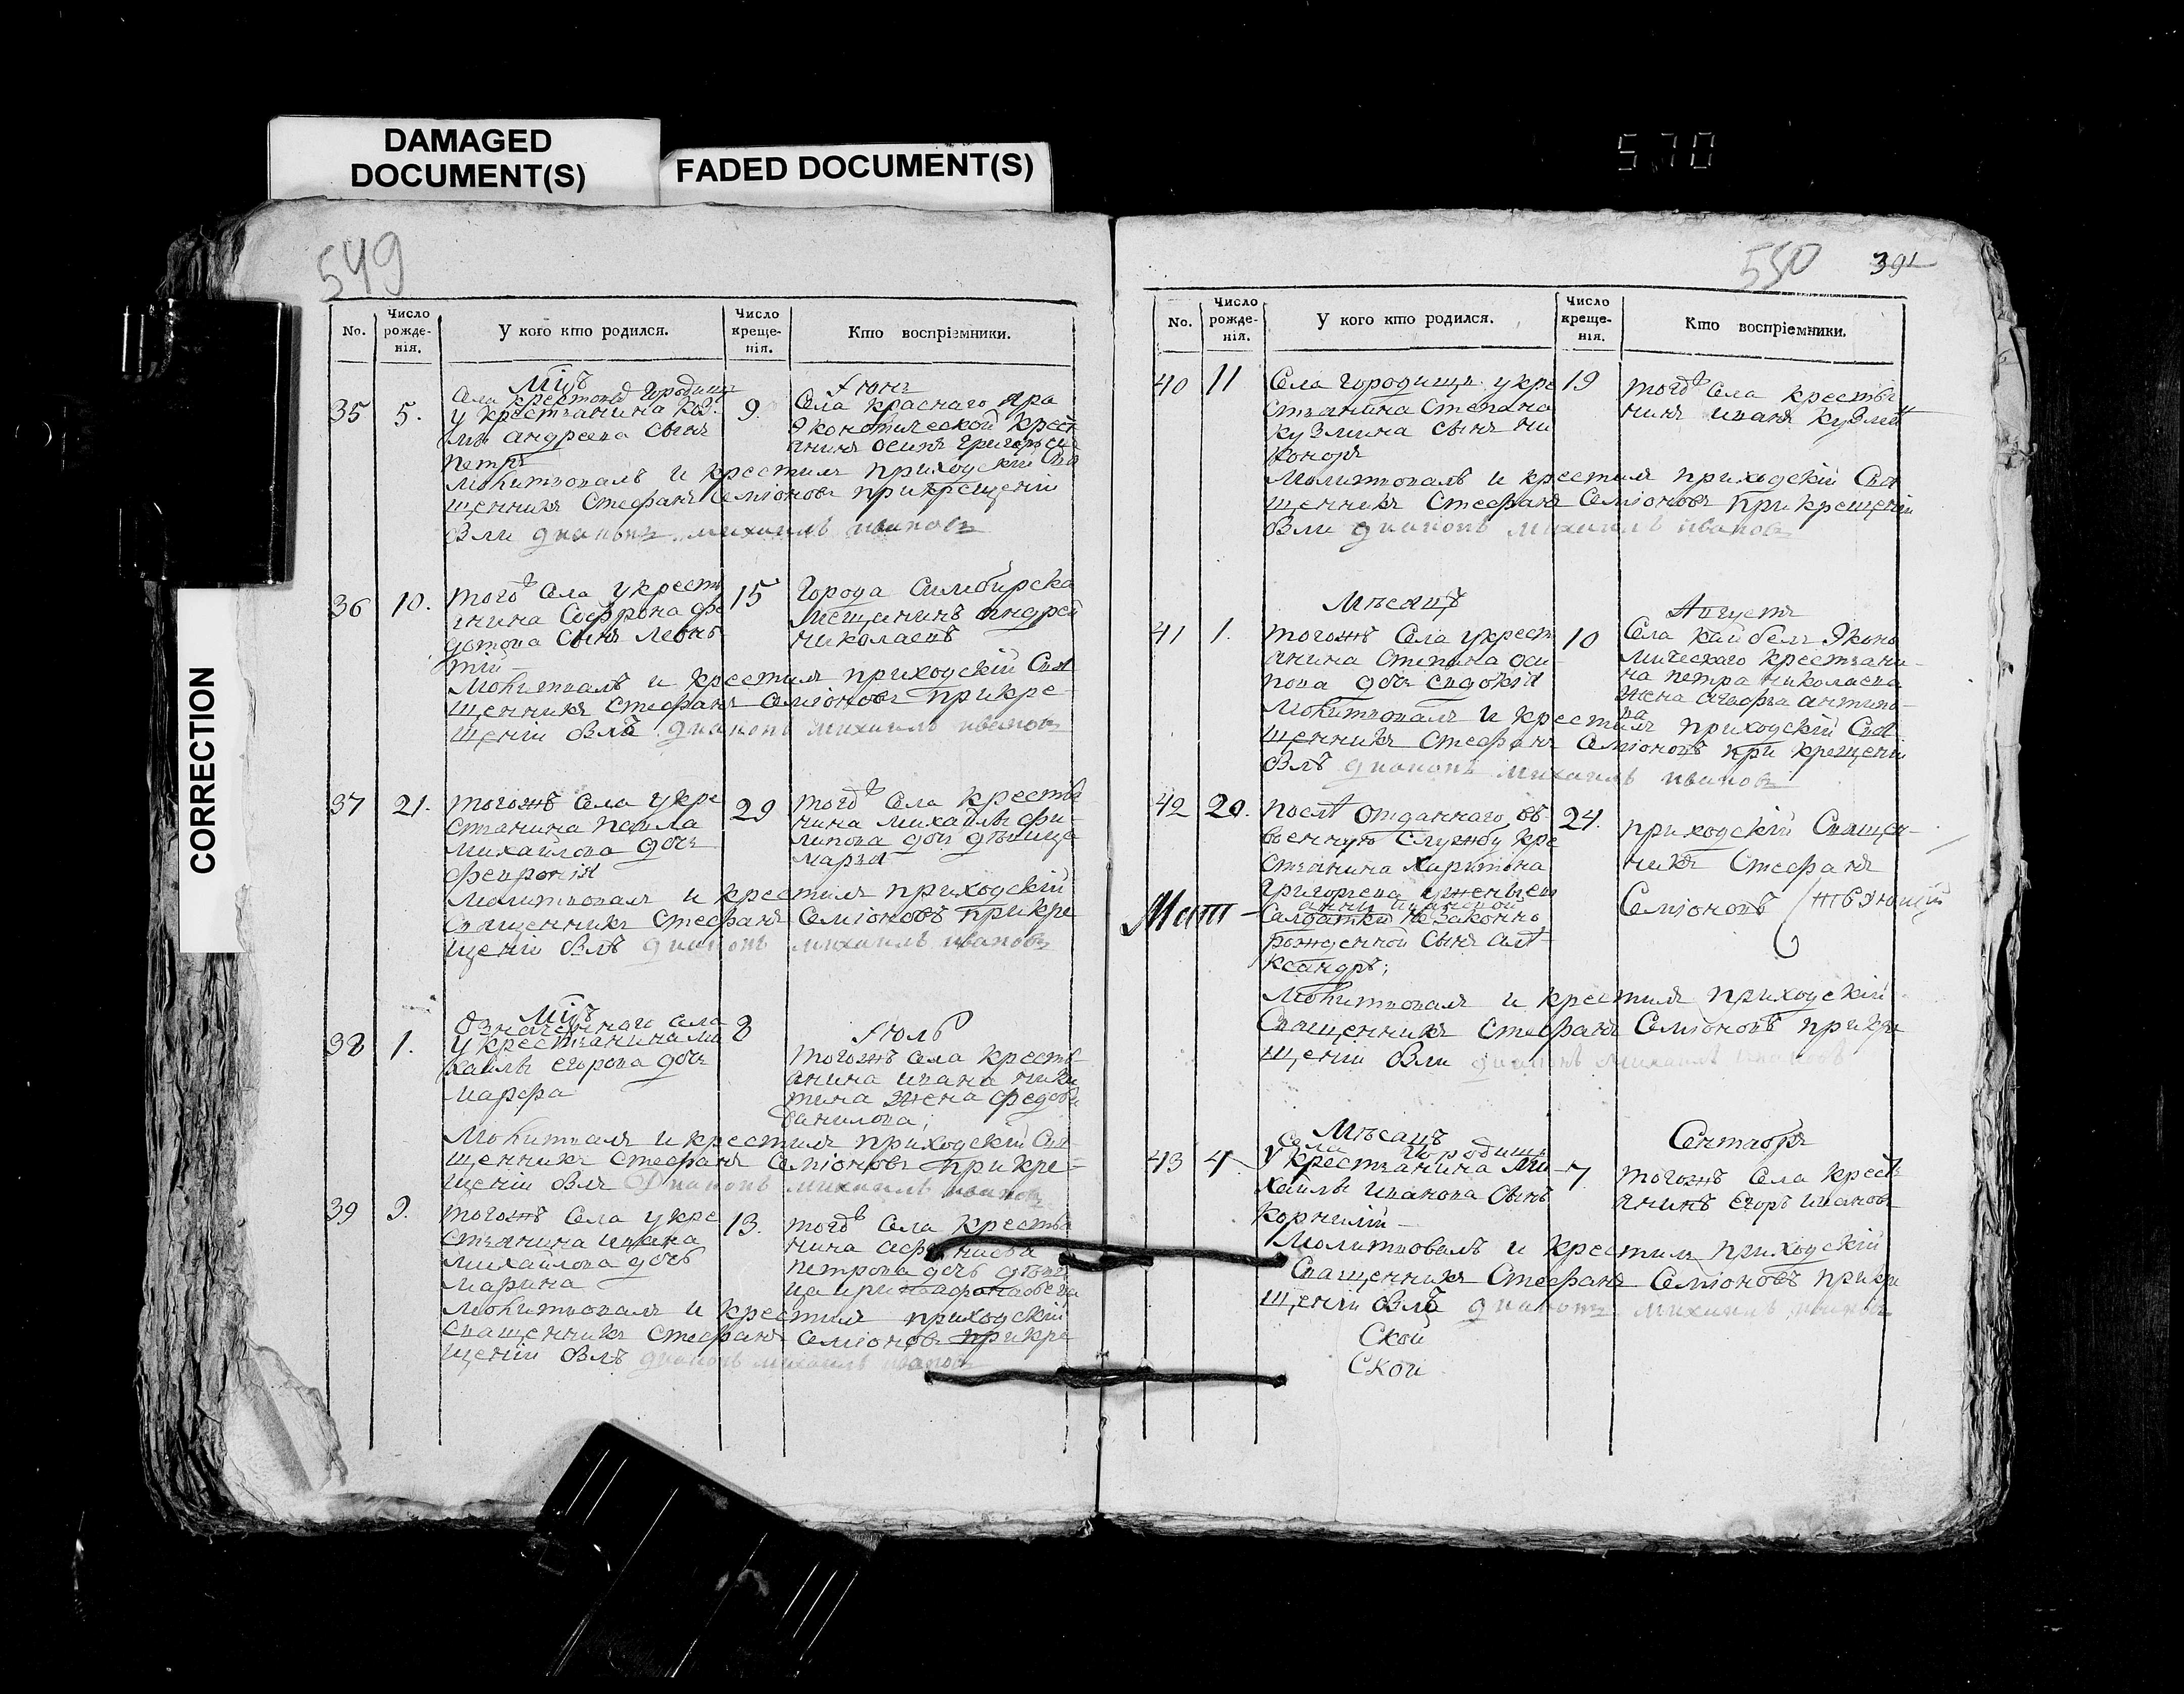 DAMAGED
DOCUMENT(S)
FADED DOCUMENT(S)
570
CORRECTION
549
No.
Число рожде-нія.
У кого кто родился.
Число креще-нія.
Кто воспріемники.
Мцъ
Іюнь
35
5.
Села Городищ
у крестьянина
андреева сынъ
петръ
9.
Села краснаго яра
Экономической крест
янинъ осипъ григорьевъ
Молитвовалъ и крестилъ приходскій Свя
щенникъ Стефанъ Семіоновъ прикрещеніи
вли диаконъ михаилъ ивановъ
36
10.
тогожъ Села у кресть
янина Софрона фе
дотова сынъ леон
тій
15
Города Симбирска
мещанинъ андрей
николаевъ
Молитвовалъ и крестилъ приходскій Свя
щенникъ Стефанъ Семіоновъ прикре
щеніи влъ диаконъ михаилъ ивановъ
37
21.
тогожъ Села у кре
стьянина павла
михайлова дочь
феврония
29
тогожъ Села кресть
нина михайлы фи
липова дочь девица
марья
Молитвовалъ и крестилъ приходскій
священникъ Стефанъ Семіоновъ прикре
щеніи влъ диаконъ михаилъ ивановъ
Мцъ
Іюль
38
1.
означеннаго села
у крестьянина ми
хайлы егорова дочь
марфа
8
тогожъ села кресть
янина ивана ники
тина жена федосья
данилова;
Молитвалъ и крестилъ приходскій Свя
щенникъ Стефанъ Семіоновъ прикре=
щеніи влъ Диаконъ михаилъ ивановъ
39
9.
тогожъ Села у кре
стьянина ивана
михайлова дочь
марина
13.
тогожъ Села кресть
нина
петрова дочь
Молитвовалъ и крестилъ приходскій
священникъ стефанъ Семіоновъ прикре
щеніи влъ диаконъ михаилъ ивановъ
550
391
No.
Число рожде-нія.
У кого кто родился.
Число креще-нія.
Кто воспріемники.
40
11
Села городища у кре
стьянина Степана
кузмина сынъ ни
коноръ
19
тогожъ Села кресть
нинъ иванъ кузминъ
Молитвовалъ и крестилъ приходскій Свя
щенникъ Стефанъ Семіоновъ прикрещеніи
вли диаконъ михаилъ ивановъ
Месяцъ
Августъ
41
1.
тогожъ Села у крест
янина Степана оси
пова дочь евдокія
10
Села кайбелъ Эконо
мическаго крестьяни
на петра николаева
жена агафья антипо
ва
Молитвовалъ и крестилъ приходскій Свя
щенникъ Стефанъ Семіоновъ при крещеніи
влъ диаконъ михаилъ ивановъ
42
20.
после отданнаго въ
военную службу кре
стьянина Харитона
Григорьева у жены ево
анны ивановой
Салдатки не законно
рожденной сынъ але
ксандръ;
24.
приходскій Священ
никъ Стефанъ
Семіоновъ
Молитвовалъ и крестилъ приходскій
Священникъ Стефанъ Семіоновъ прикре
щеніи вли диаконъ михаилъ ивановъ
Месяцъ
Сентябрь
43
4
Села Городищ
У крестьянина Ми
хайлы иванова сынъ
корнилій
7.
тогожъ Села крест
янинъ Егоръ ивановъ
Молитвовалъ и крестилъ приходскій
Священникъ Стефанъ Семіоновъ прикре
щеніи влъ диаконъ михаилъ ивановъ
Ской
Ской